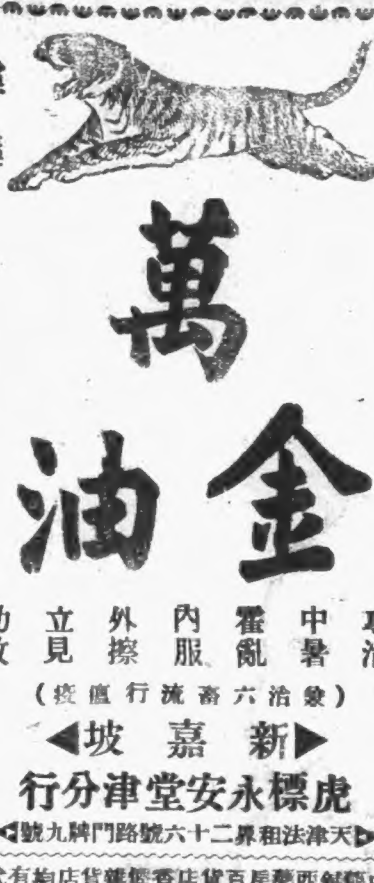 萬
金油
中暑
霍亂
內服
外擦
立見
(兼治六畜流行瘟疫)
新嘉坡
虎標永安堂津分行
天津法租界二十六號路門牌九號